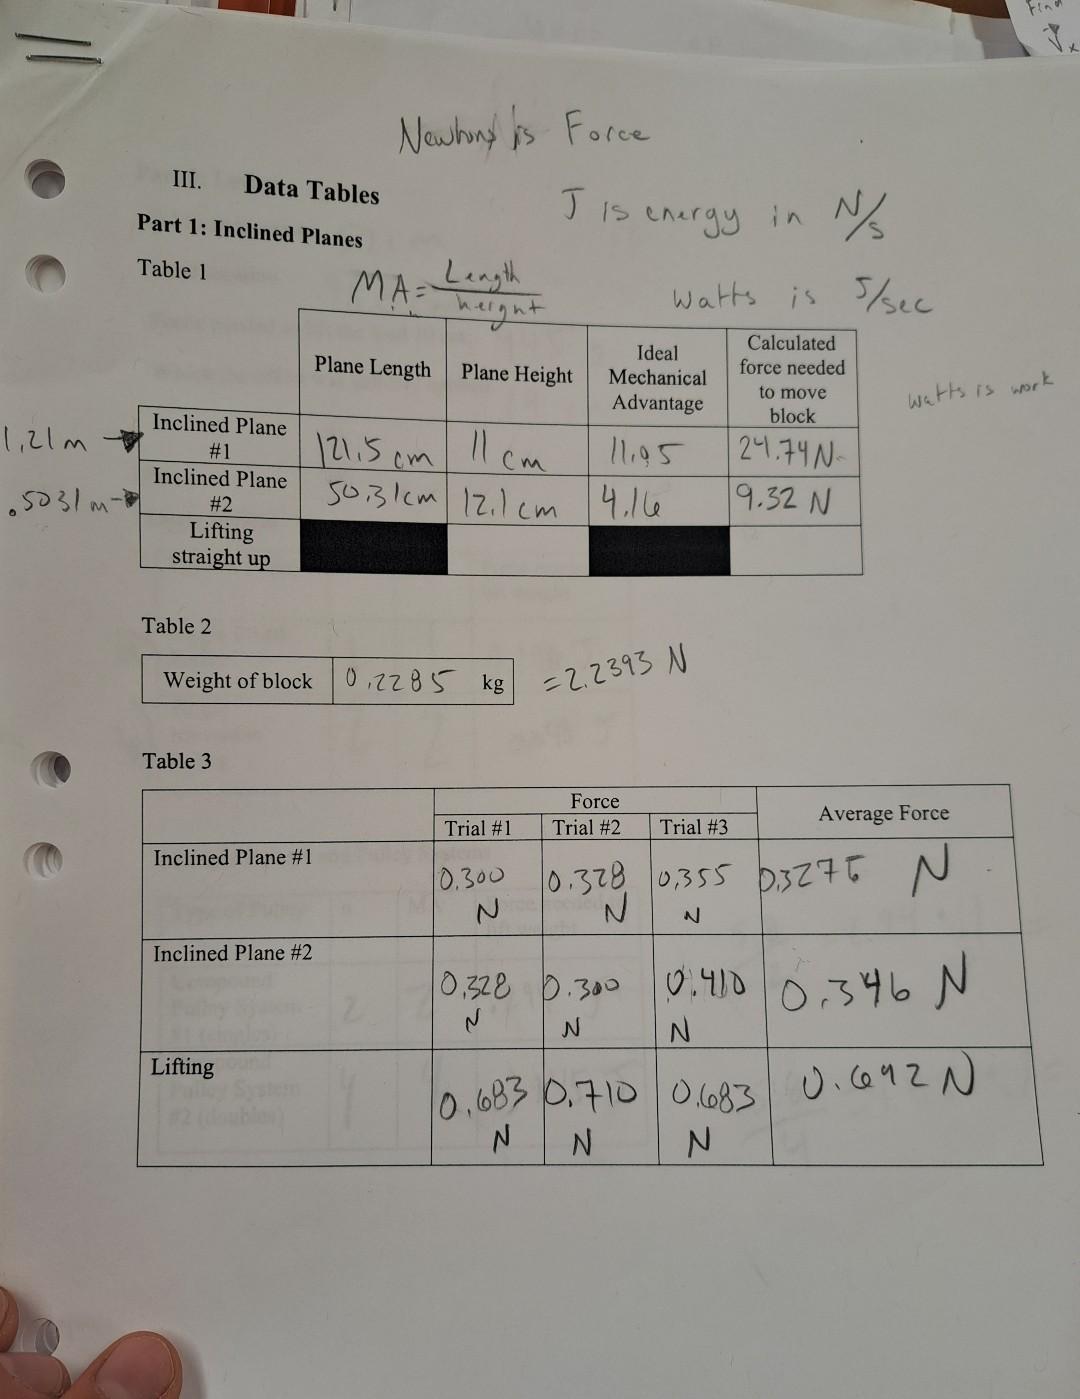 Find
Newtons is Force
III. Data Tables
J is energy in N/s
Part 1: Inclined Planes
Table 1
MA = Length / height
Watts is J/sec
Watts is work
Plane Length | Plane Height | Ideal Mechanical Advantage | Calculated force needed to move block
1,21 m → Inclined Plane #1 | 121.5 cm | 11 cm | 11.05 | 24.74 N
.5031 m → Inclined Plane #2 | 50.31cm | 12.1 cm | 4.16 | 9.32 N
Lifting straight up
Table 2
Weight of block | 0.2285 kg = 2.2393 N
Table 3
Force | Average Force
Trial #1 | Trial #2 | Trial #3
Inclined Plane #1 | 0.300 N | 0.328 N | 0.355 N | 0.3276 N
Inclined Plane #2 | 0.328 N | 0.300 N | 0.410 N | 0.346 N
Lifting | 0.683 N | 0.710 N | 0.683 N | 0.692 N